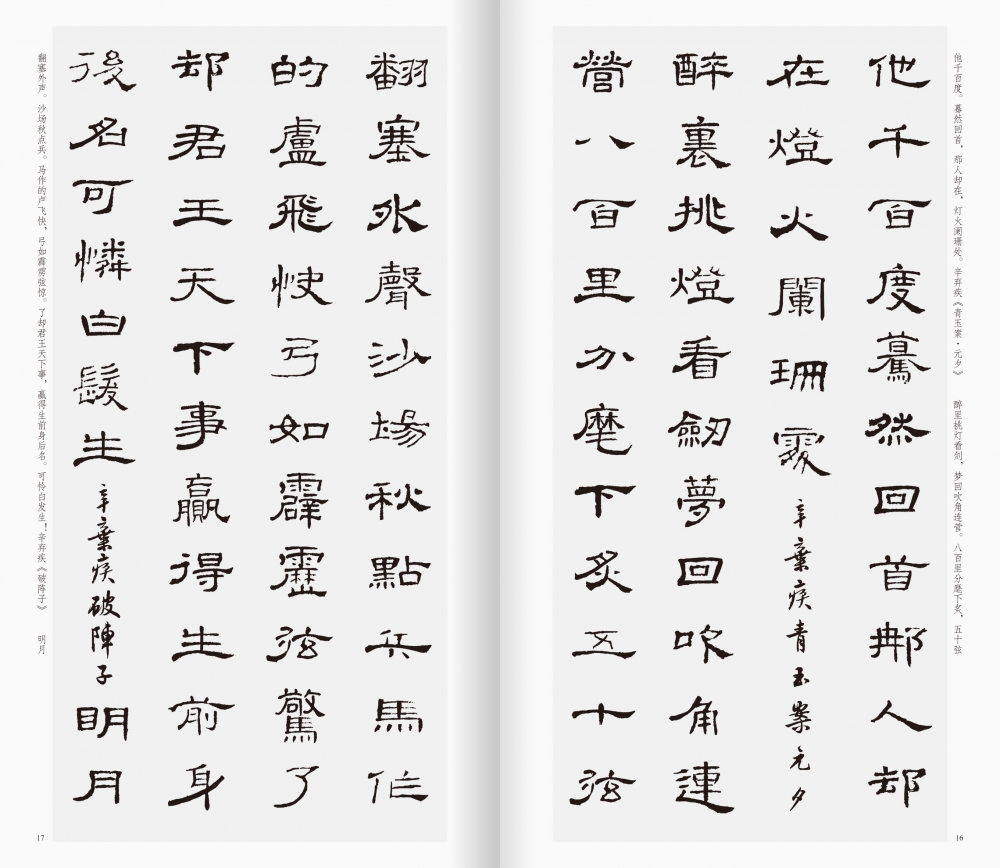 他千百度。蓦然回首，那人却在，灯火阑珊处。辛弃疾《青玉案·元夕》 醉里挑灯看剑，梦回吹角连营。八百里分麾下炙，五十弦
他千百度驀然回首那人却
在燈火闌珊處 辛棄疾青玉案元夕
醉裏挑燈看劒夢回吹角連
營八百里分麾下炙五十弦
16
翻塞外聲沙場秋點兵馬作
的盧飛快弓如霹靂弦驚了
却君王天下事贏得生前身
後名可憐白髮生 辛棄疾破陣子 明月
翻塞外声。沙场秋点兵。马作的卢飞快，弓如霹雳弦惊。了却君王天下事，赢得生前身后名。可怜白发生！辛弃疾《破阵子》 明月
17